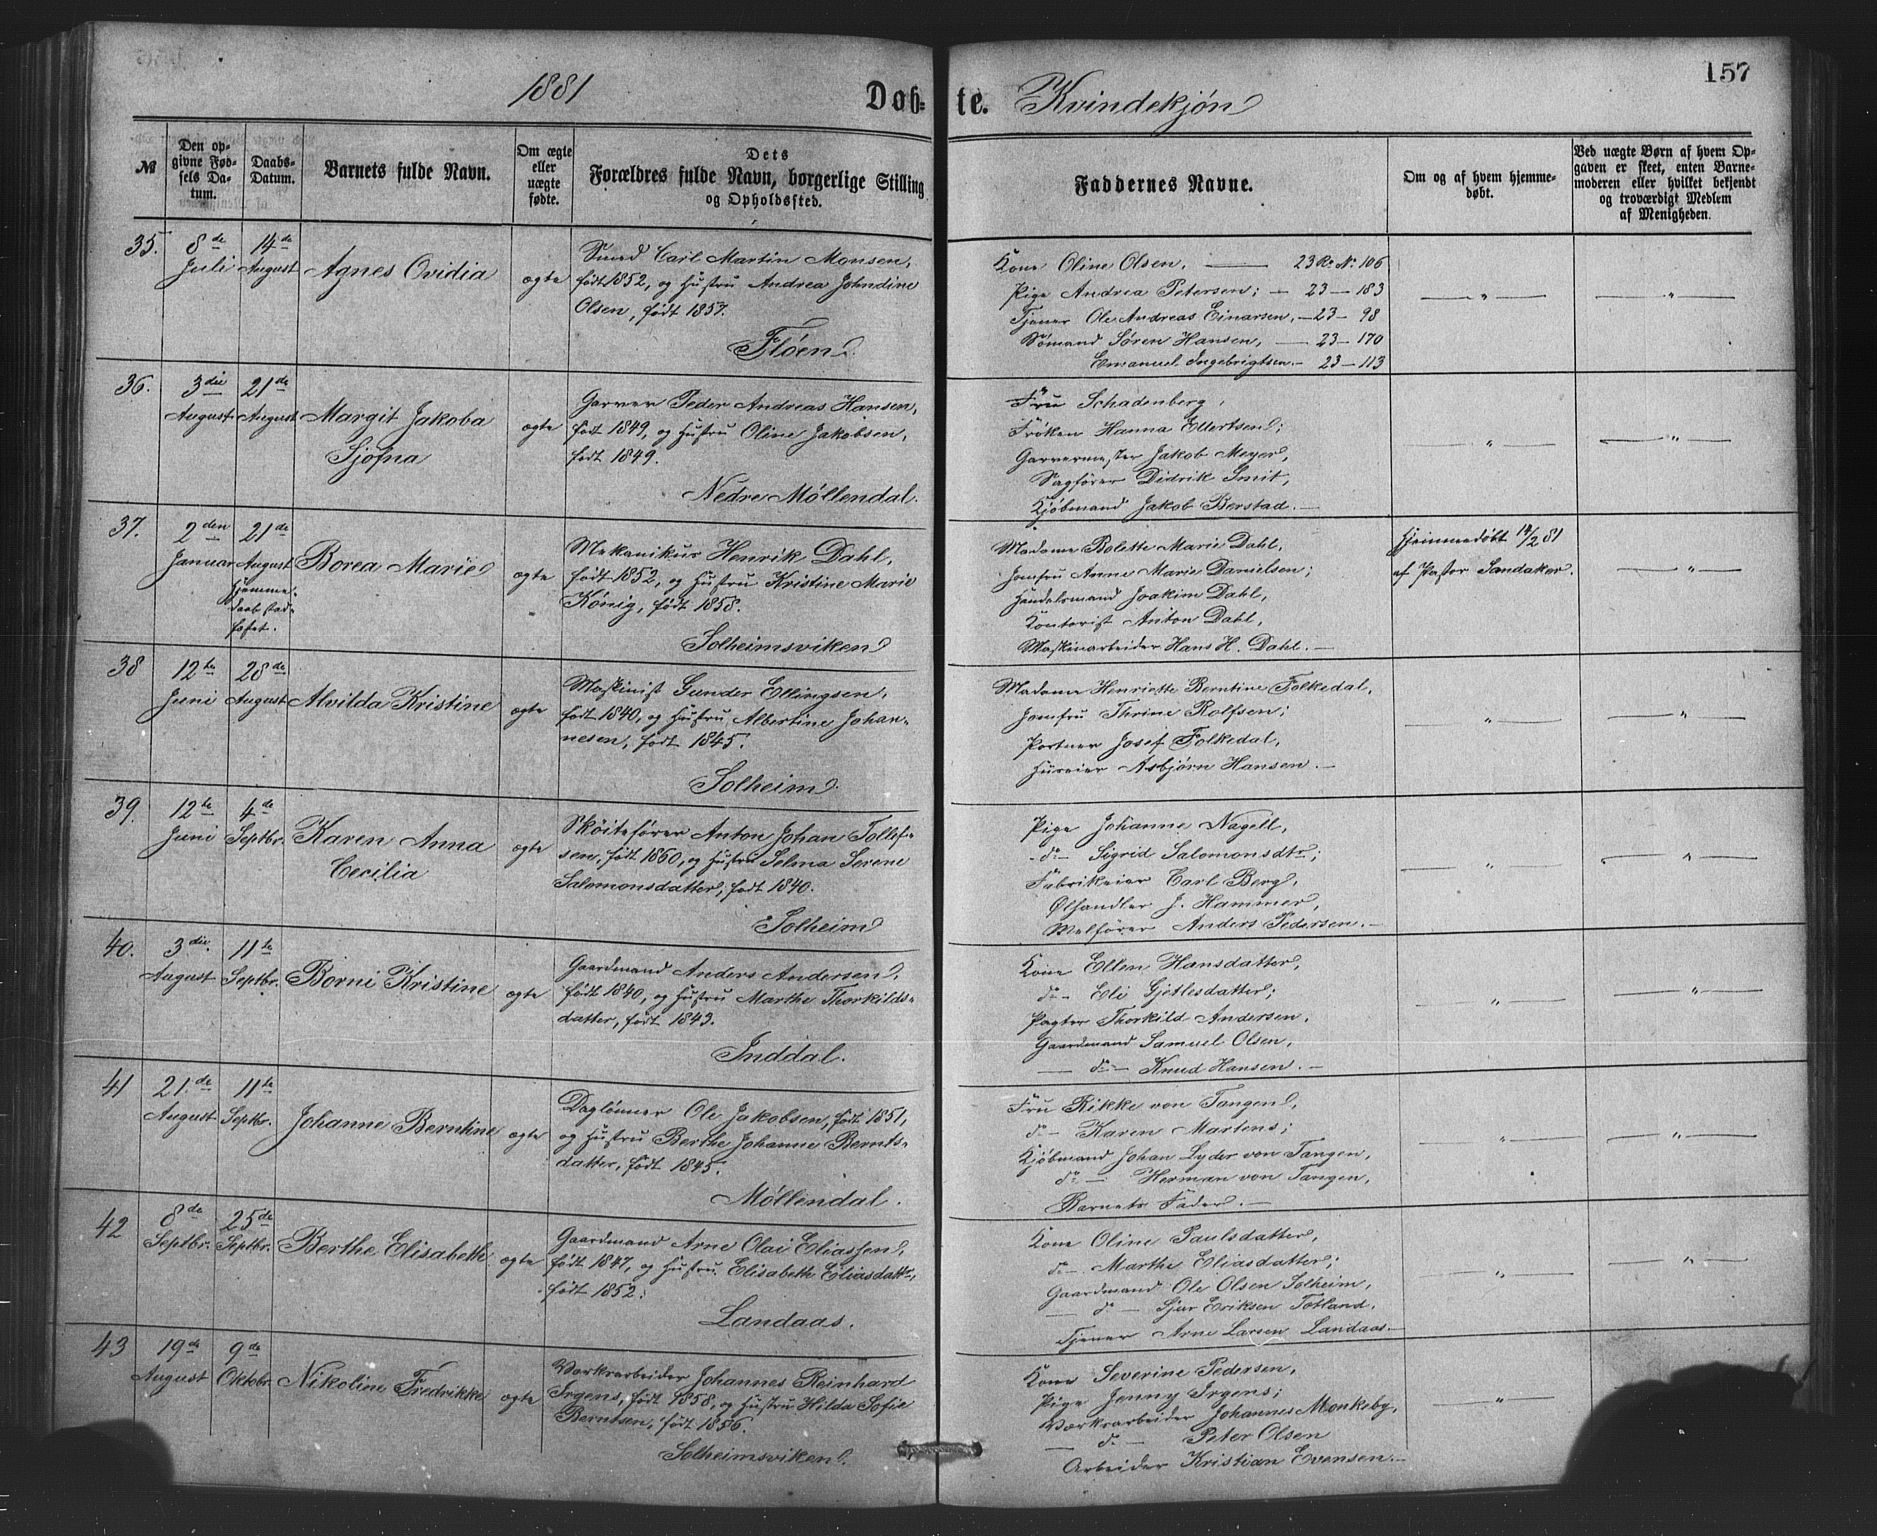 157
1881 Døb- te. Kvindekjøn
№
Den op-
givne Fød-
sels Da-
tum.
Daabs-
Datum.
Barnets fulde Navn.
Om ægte
eller
uægte
fødte.
Dets
Forældres fulde Navn, borgerlige Stilling
og Opholdssted.
Faddernes Navne.
Om og af hvem hjemme-
døbt.
Ved uægte Børn af hvem Op-
gaven er skeet, enten Barne-
moderen eller hvilket bekjendt
og troværdigt Medlem
af Menigheden.
35.
8de
Juli
14de
August
Agnes Ovidia
ægte
Smed Carl Martin Monsen,
født 1852, og Hustru Andrea Johndine
Olsen, født 1857.
Fløen.
Kone Oline Olsen, — 23 R. N. 106
Pige Andrea Petersen; — 23 — 183
Tjener Ole Andreas Einarsen, — 23 — 98
Sømand Søren Hansen, — 23 — 170
Emanuel Ingebrigtsen — 23 — 113
— „ —
— „ —
36.
3die
August
21de
August
Margit Jakoba
Sjøfna
ægte
Garver Peder Andreas Hansen,
født 1849, og Hustru Oline Jakobsen,
født 1849.
Nedre Møllendal.
Fru Schadenberg,
Frøken Hanna Ellertsen;
Garvermester Jakob Meyer,
Sagfører Didrik Smit,
Kjøbmand Jakob Berstad. —
— „ —
— „ —
37.
2den
Januar
21de
August
Hjemme-
daab stad-
fæstet.
Borea Marie
ægte
Mekanikus Henrik Dahl,
født 1852, og Hustru Kristine Marie
König, født 1858.
Solheimsviken
Madame Bolette Marie Dahl,
Jomfru Anne Marie Danielsen;
Handelsmand Joakim Dahl,
Kontorist Anton Dahl,
Maskinarbeider Hans H. Dahl. —
Hjemmedøbt /2 81
af Pastor Sandaker.
— „ —
38
12te
Juni
28de
August
Alvilda Kristine
ægte
Maskinist Gunder Ellingsen,
født 1840, og Hustru Albertine Johan-
nesen, født 1845.
Solheim.
Madame Henriette Berntine Folkedal,
Jomfru Thrine Rolfsen;
Portner Josef Folkedal,
Huseier Asbjørn Hansen. —
— „ —
— „ —
39.
12te
Juni
4de
Septbr.
Karen Anna
Cecilia
ægte
Skøitefører Anton Johan Tollef-
sen, født 1860, og Hustru Selma Serene
Salomonsdatter, født 1840.
Solheim
Pige Johanne Nagell,
do — Sigrid Salomonsdtr;
Fabrikeier Carl Berg,
Ølhandler J. Hammer,
Anders Pedersen. —
— „ —
— „ —
40.
3die
August
11te
Septbr.
Borni Kristine
ægte
Gaardmand Anders Andersen,
født 1840, og Hustru Marthe Thorkilds-
datter, født 1843.
Inddal.
Kone Ellen Hansdatter,
do — Eli Gjetlesdatter;
Pagter Thorkild Andersen,
Gaardmand Samuel Olsen,
— do — Knud Hansen. —
— „ —
— „ —
41
21.de
August
11te
Septbr.
Johanne Berntine
ægte
Daglønner Ole Jakobsen, født 1851,
og Hustru Berthe Johanne Bernts-
datter, født 1845.
Møllendal.
Fru Rikke von Tangen,
do — Karen Martens;
Kjøbmand Johan Lyder von Tangen,
do — Herman von Tangen,
Barnets Fader. —
— „ —
— „ —
42
8de
Septbr.
25de
Septbr.
Berthe Elisabeth
ægte
Gaardmand Arne Olai Eliassen,
født 1847, og Hustru Elisabeth Eliasdattr,
født 1852.
Landaas.
Kone Oline Paulsdatter,
do — Marthe Eliasdatter;
Gaardmand Ole Olsen Solheim,
— do — Sjur Eriksen Totland,
Tjener Arne Larsen Landaas. —
— „ —
— „ —
43
19de
August
9de
Oktobr.
Nikoline Fredrikke
ægte
Værkarbeider Johannes Reinhard
Irgens, født 1858, og Hustru Hilda Sofie
Berntsen, født 1856.
Solheimsviken.
Kone Severine Pedersen,
Pige Jenny Irgens;
Værkarbeider Johannes Monkeby,
— do — Peter Olsen
Arbeider Kristian Evensen. —
— „ —